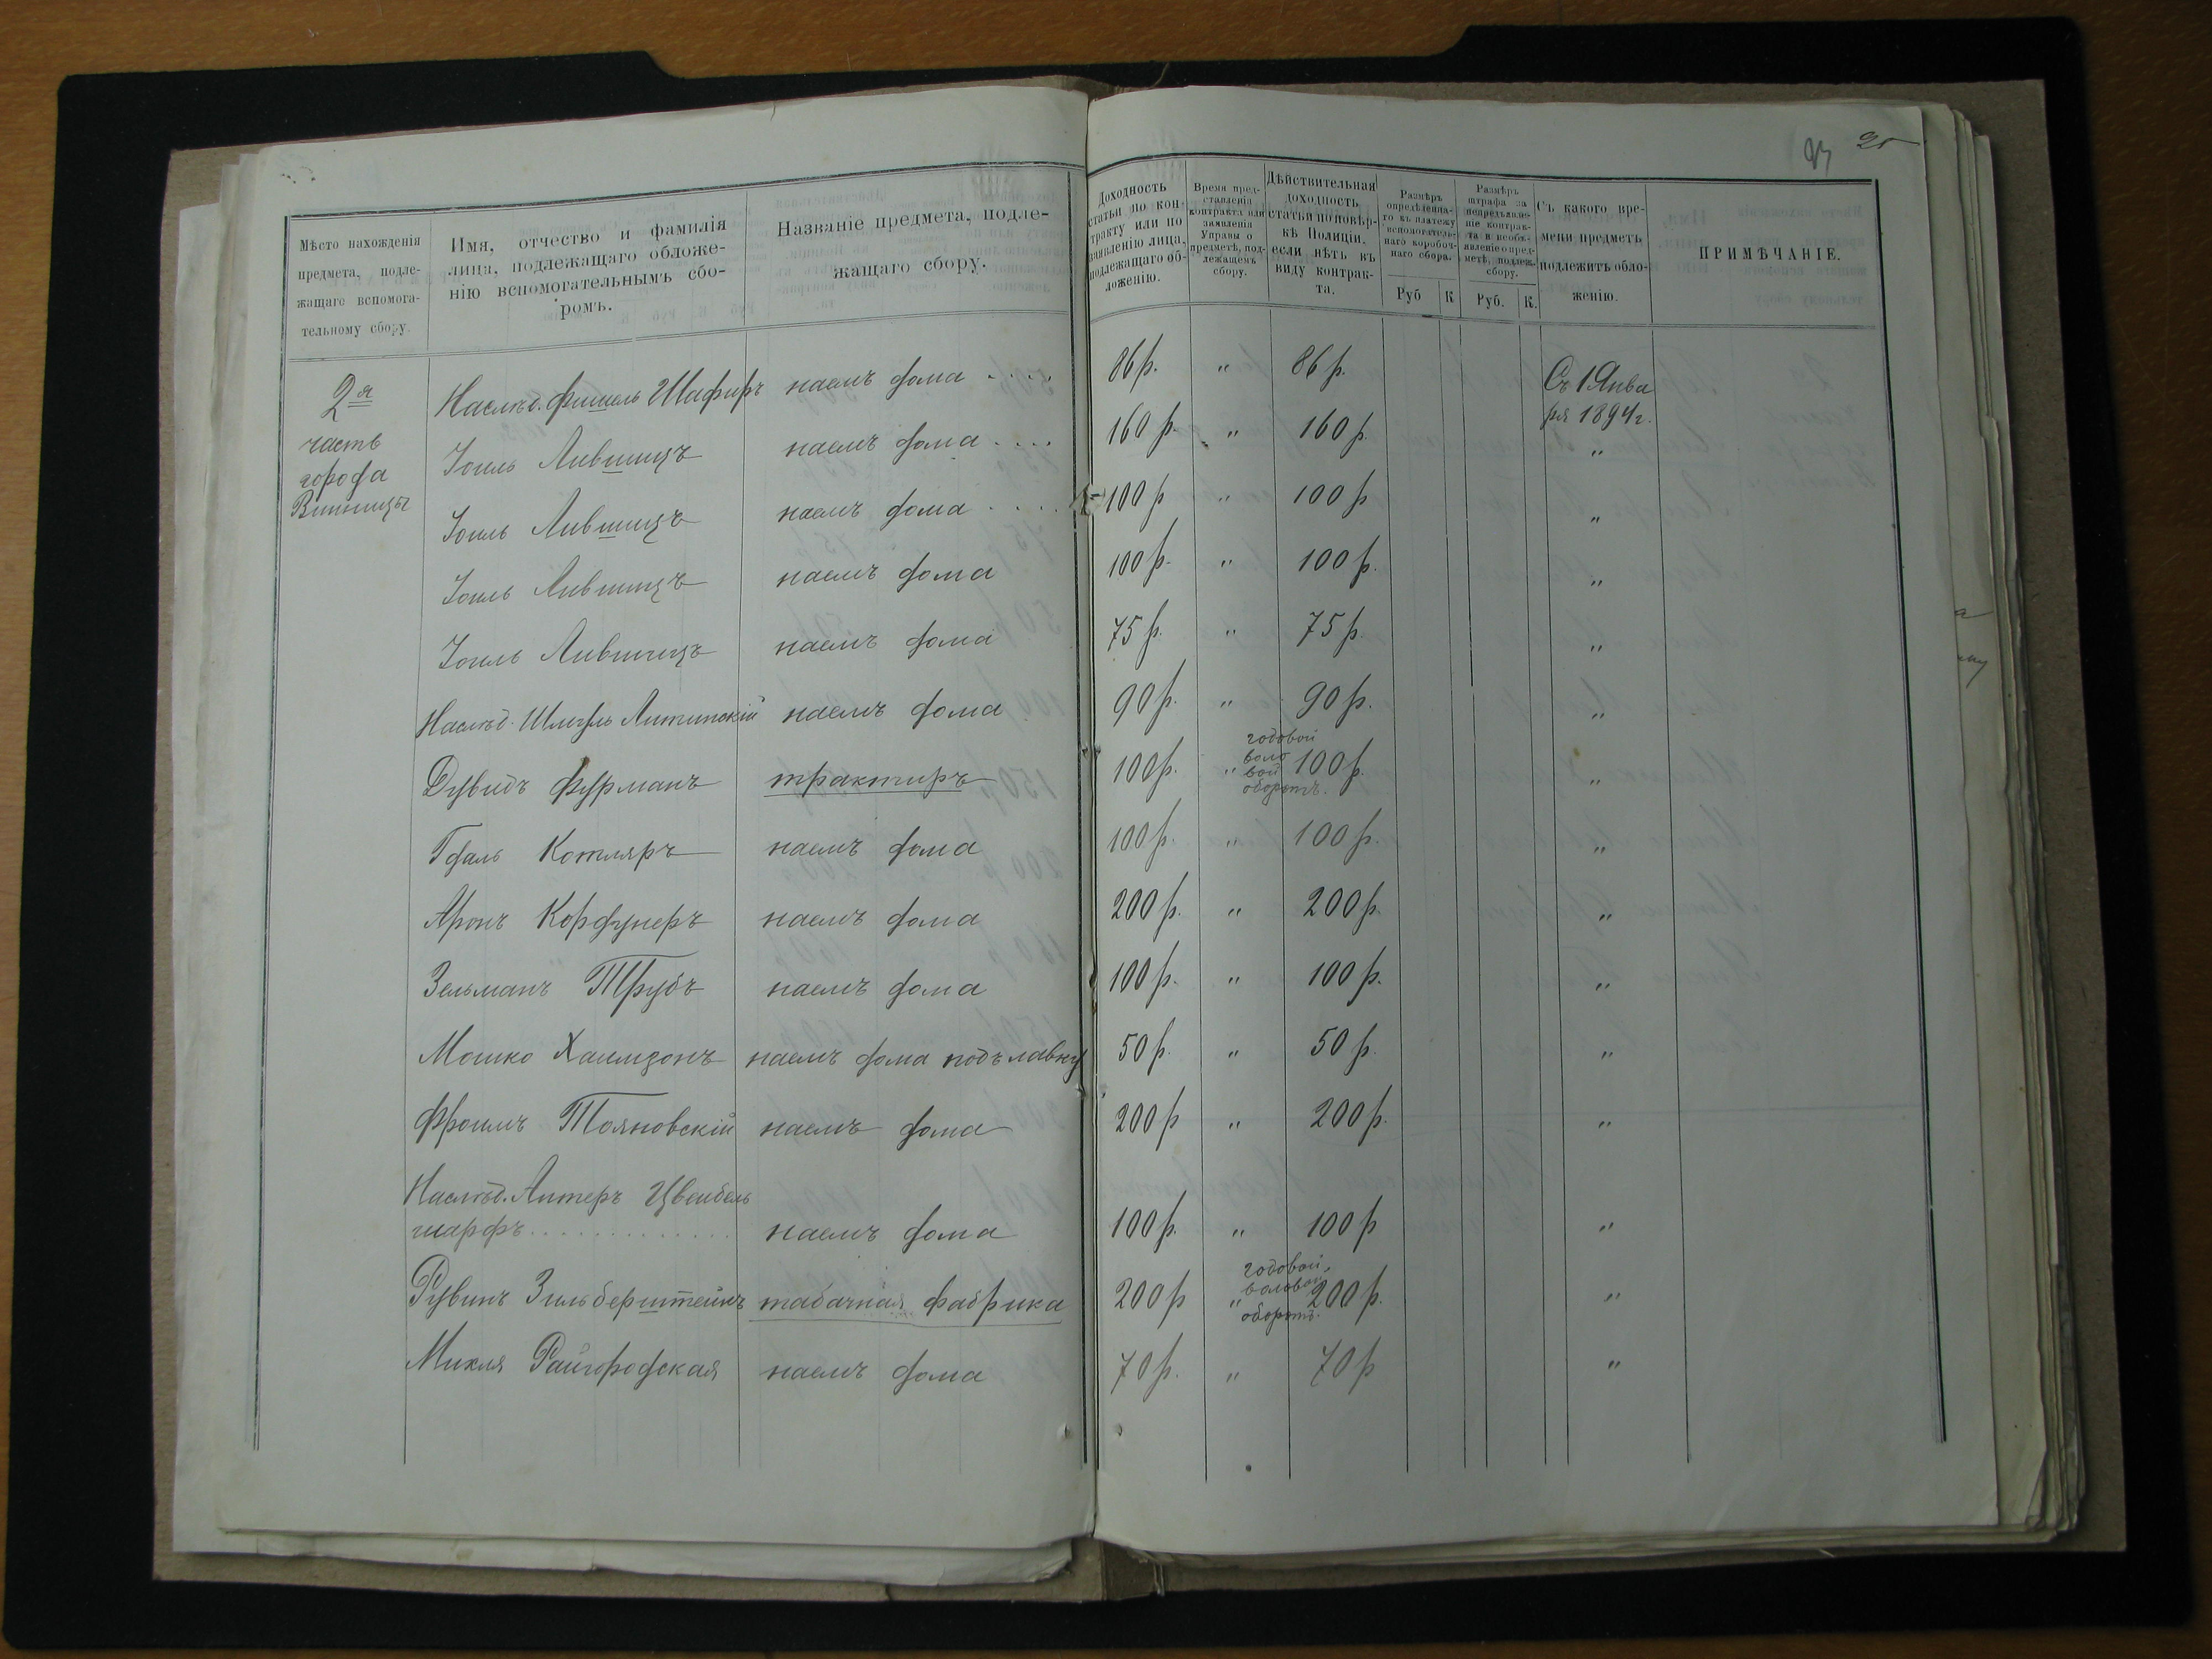 23 25
Мѣсто нахожденія предмета, подлежащаго вспомогательному сбору.
Имя, отчество и фамилія лица, подлежащаго обложенію вспомогательнымъ сборомъ.
Названіе предмета, подлежащаго сбору.
Доходность статьи по контракту или по заявленію лица, подлежащаго обложенію.
Время представленія контракта или заявленія Управы о предметѣ, подлежащемъ сбору.
Дѣйствительная доходность статьи по повѣркѣ Полиціи, если нѣтъ въ виду контракта.
Размѣръ опредѣленнаго къ платежу вспомогательнаго коробочнаго сбора. Руб К
Размѣръ штрафа за непредъявленіе контракта и необъявленіе о предметѣ, подлеж. сбору. Руб. К.
Съ какого времени предметъ подлежитъ обложенію.
ПРИМѢЧАНІЕ.
2я часть города Винницы
Наслѣд. Фишель Шафиръ наемъ дома .... 86 р. " 86 р. Съ 1 Января 1894 г.
Іоиль Лившицъ наемъ дома .... 160 р. " 160 р. "
Іоиль Лившицъ наемъ дома .... 100 р " 100 р "
Іоиль Лившицъ наемъ дома 100 р. " 100 р. "
Іоиль Лившицъ наемъ дома 75 р. " 75 р. "
Наслѣд. Шмуль Литинскій наемъ дома 90 р. " 90 р. "
Дувидъ Фурманъ трактиръ 100 р. " годовой валовой оборотъ. 100 р. "
Гдаль Котляръ наемъ дома 100 р. " 100 р. "
Аронъ Кордунеръ наемъ дома 200 р. " 200 р. "
Зельманъ Трубъ наемъ дома 100 р. " 100 р. "
Мошко Хаимзонъ наемъ дома подъ лавку 50 р. " 50 р. "
Фроимъ Тояновскій наемъ дома 200 р " 200 р. "
Наслѣд. Алтеръ Цвейбель
шарфъ .............. наемъ дома 100 р. " 100 р "
Рувинъ Зильберштейнъ табачная фабрика 200 р " годовой валовой оборотъ. 200 р. "
Микля Райгородская наемъ дома 70 р. " 70 р "